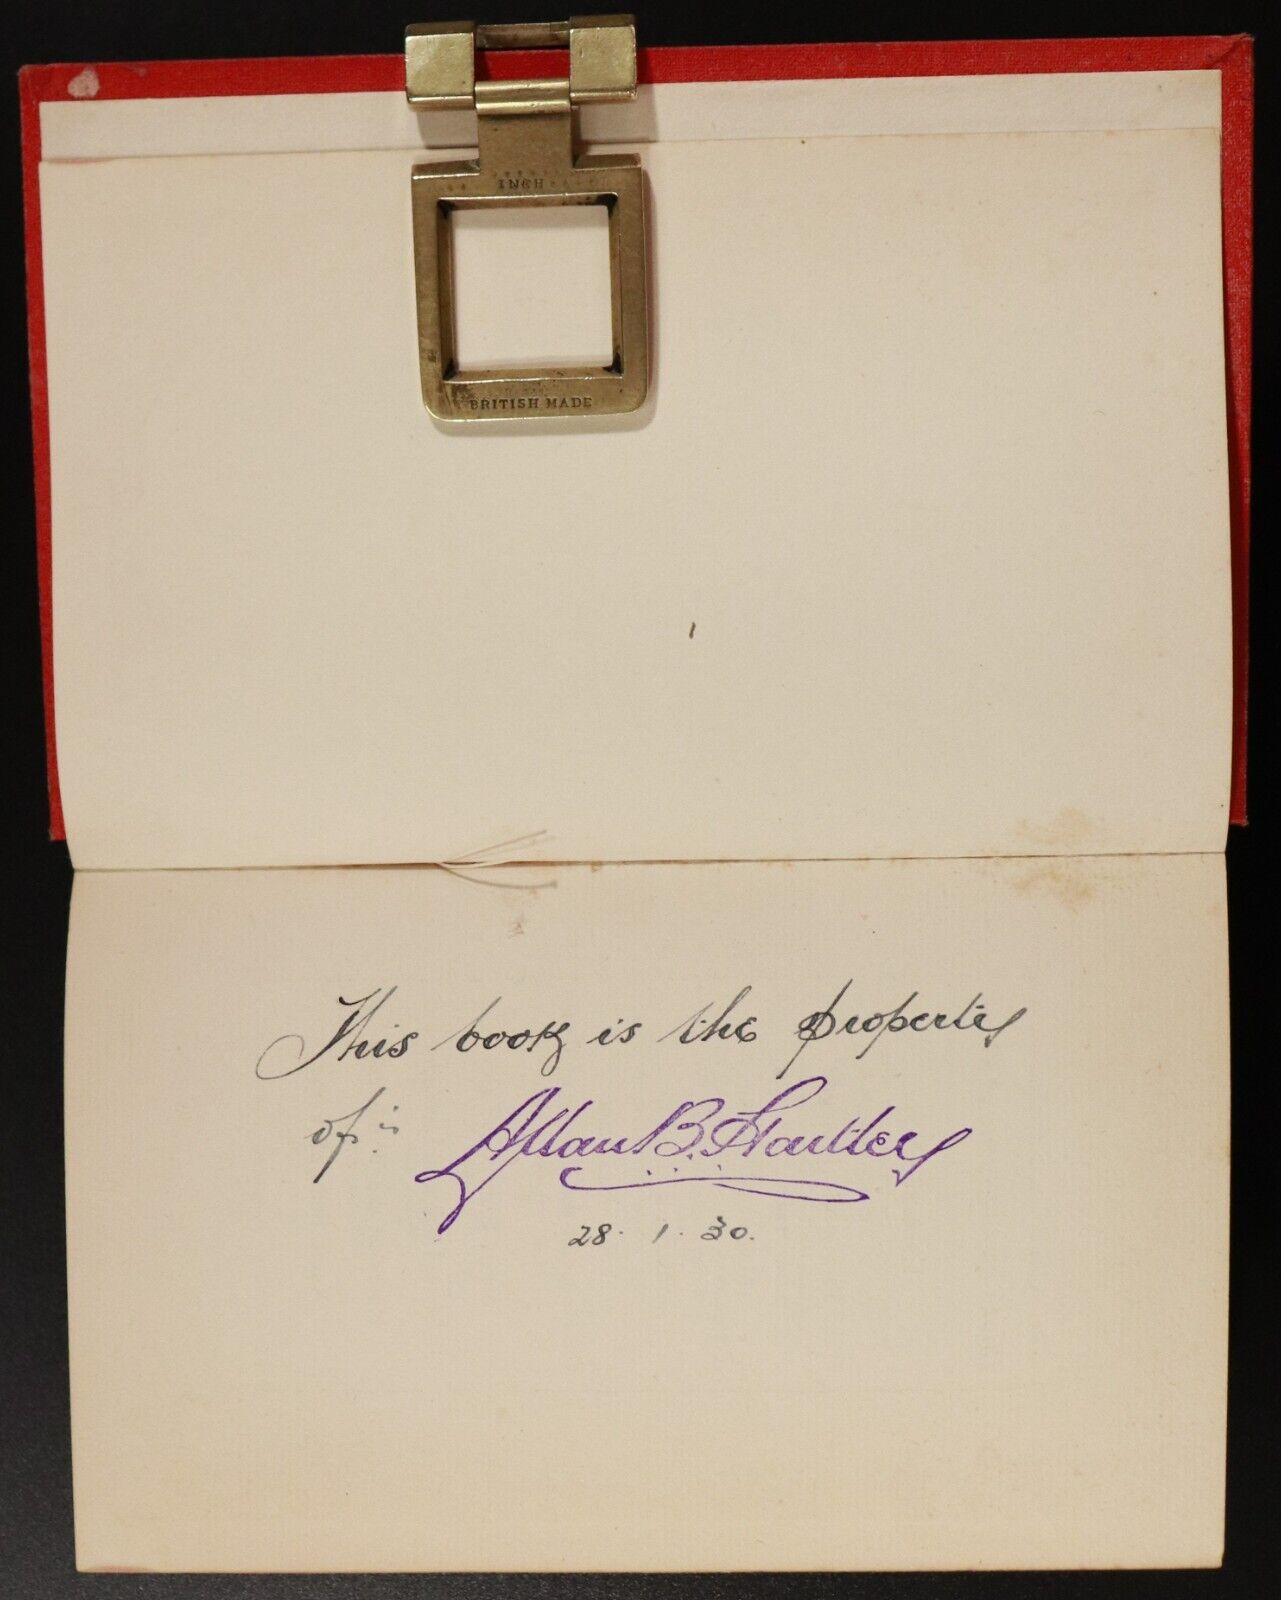 INCH
BRITISH MADE
This book is the property
of:-
Allan B. Hartley
28. 1. 30.